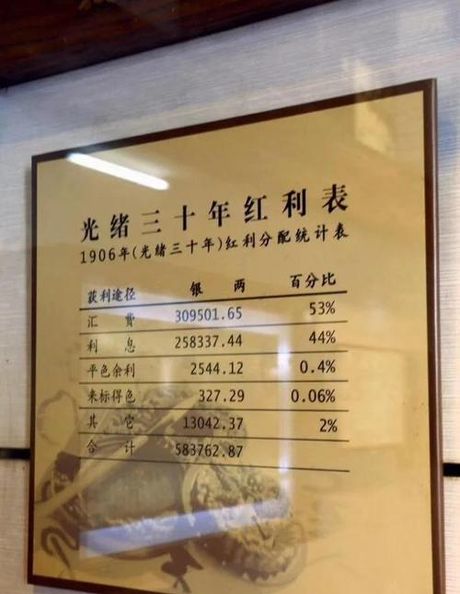 光绪三十年红利表
1906年(光绪三十年)红利分配统计表
获利途径 银 两 百分比
汇 费 309501.65 53%
利 息 258337.44 44%
平色余利 2544.12 0.4%
来标得色 327.29 0.06%
其 它 13042.37 2%
合 计 583762.87